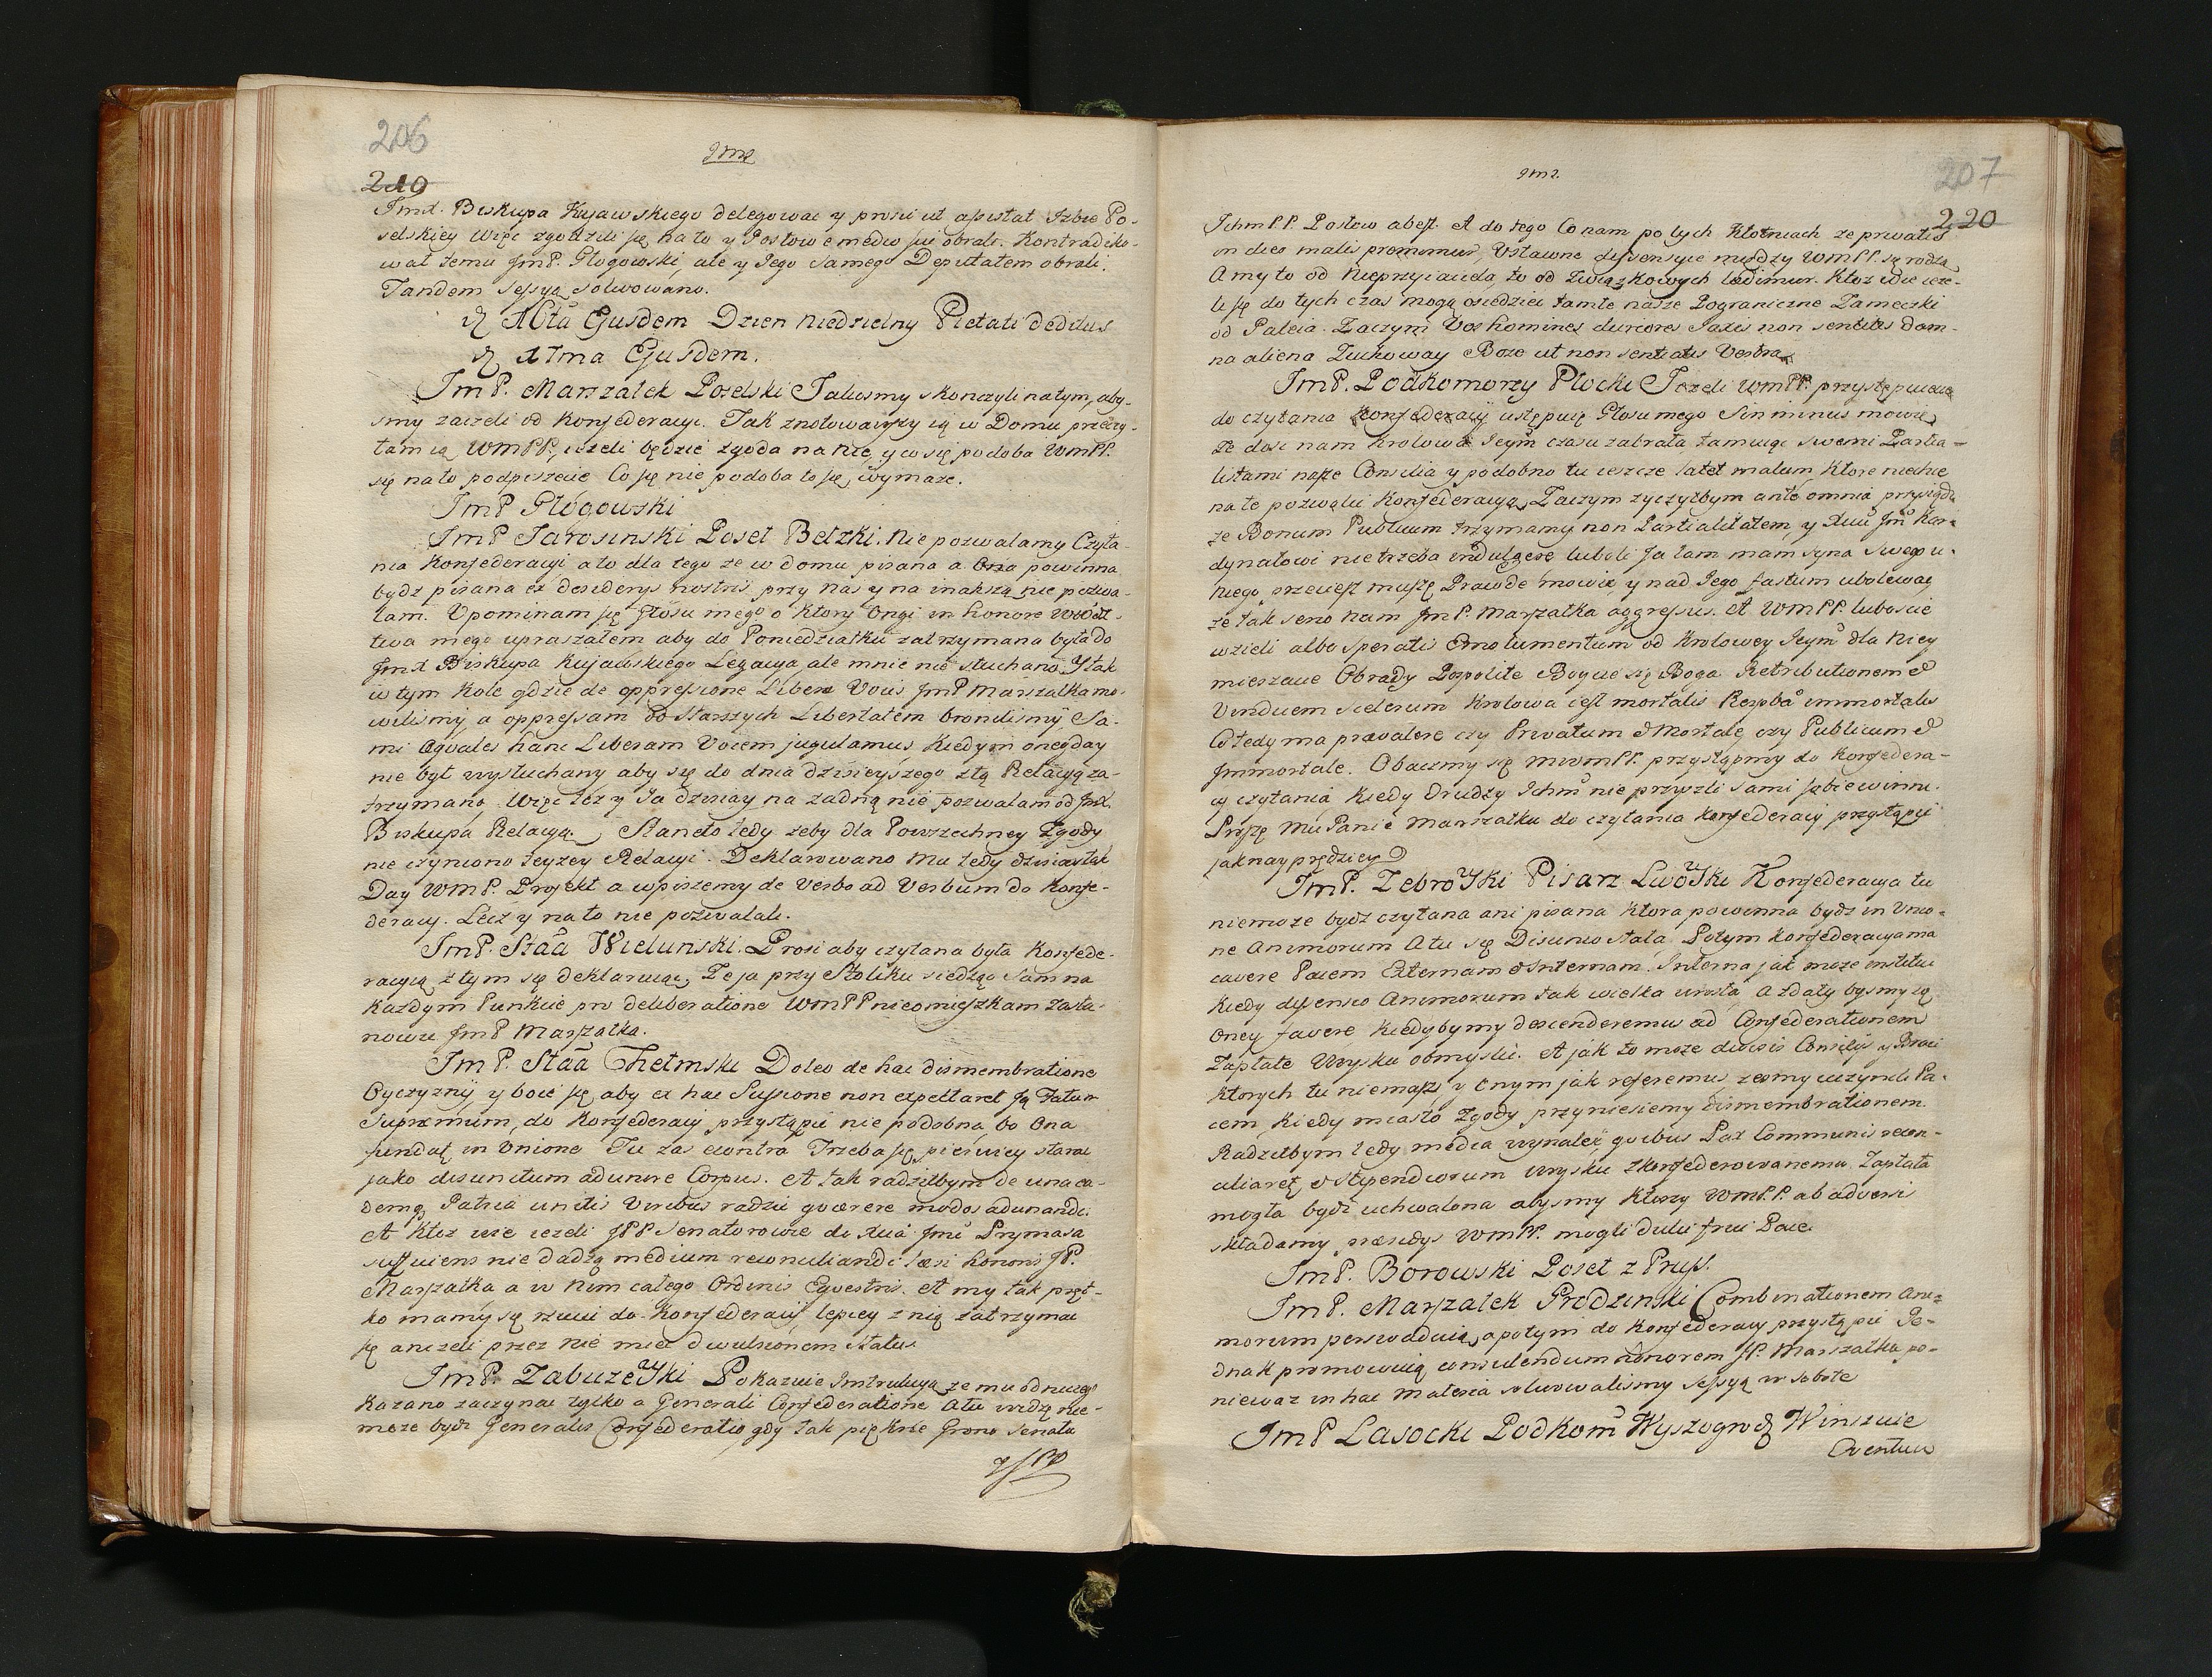 206
210
Jmx. Biskupa Kujawskiego delegować y prosić ut assistat Izbie Po-
selskiey Więc zgodzili się na to y Posłow e medio sui obrali. Kontradiko-
wał temu JmP. Głogowski, ale y Jego samego Deputatem obrali.
Tandem sessyą solwowano.
Ejusdem Dzien Niedzielny Pietati deditus
Ejusdem.
JmP. Marszałek Poselski Jakosmy skonczyli na tym, aby-
smy zaczeli od Konfederacyi. Jak znotowawszy ią w Domu przeczy-
tam ią WmPP., ieżeli będzie zgoda na nię, y co się podoba WmPP.
się na to podpiszecie Co się nie podoba to się wymaże.
JmP Głogowski
JmP Jarosinski Poseł Bełzki. Nie pozwalamy Czyta-
nia Konfederacyi a to dla tego ze w domu pisana a Ona powinna
bydz pisana ex desiderys nostris przy nas y na inakszą nie pozwa-
lam. Upominam się Głosu mego o ktory Ongi in honore Wdz-
twa mego upraszałem aby do Poniedziałku zatrzymana była do
Jmx Biskupa Kujawskiego Legacya, ale mnie nie słuchano. Y tak
w tym Kole gdzie de oppressione Libera Vocis JmP Marszałka mo-
wilismy, a oppressam od Starszych Libertatem bronilismy Sa-
mi Aquales hanc Liberam Vocem jugulamus, Kiedym onegday
nie był wysłuchany aby się do dnia dzisieyszego z tą Relacyą za-
trzymano, Więc tez y Ja dzisiay na zadną nie pozwalam od Jmx.
Biskupa Relacyą. Staneło tedy zeby dla Powszechney Zgody
nie czyniono teyzey Relacyi. Deklarowano Mu tedy dzisiay tak
Day WmP. Projekt a wpiszemy de Verbo ad Verbum do Konfe-
deracy. Lecz y na to nie pozwalali.
JmP. Staa Wielunski. Prosi aby czytana była Konfede-
racya z tym się deklaruiąc, Ze ja przy Stoliku siedząc Sam na
kazdym Punkcie pro deliberatione WmPP nieomieszkam zasta-
nowić JmP Marszałka.
JmP. Staa Chełmski Doleo de hac dismembratione
Oyczyzny, y boie się aby ex hac Scissione non expectaret ją Fatum
Supremum, do Konfederacy przystąpić nie podobna, bo Ona
fundat in Unione Tu zas econtra Trzeba się pierwiey starac
jako disunitum adunire Corpus. Et tak radziłbym de una ea-
demq Patria unitis Viribus radzic quaerere modos adunandi.
Et ktoz wie iezeli JPP Senatorowie do Xcia Jmci Prymasa
nie dadzą medium reconciliandi laesi honoris JP.
Marszałka a w Nim całego Ordinis Equestris. Et my tak pręt-
ko mamy się rzucic do Konfederacy, lepiey z nią zatrzymac
się anizeli przez nię miec divulsionem Status.
JmP. Zabuze Ski Pokazuie Instrukcyą ze mu od niey
Kazano zaczynac tylko a Generali Confederatione Atu widzę nie-
moze bydz Generalis Confederatio, gdy tak piękne Grono Senatu
207
220
JchmPP. Posłow abest. Et do tego Co nam po tych Kłotniach ze privatis
in dies malis premimur, Ustawne dyssensye między WmPP. się rodzą
A my to od Nieprzyiaciela, to od Związkowych laedimur. Ktoz wie ieze-
li się do tych czas mogą osiedziec tamte nasze Pograniczne Zameczki
od Palcia. Zaczym Vos homines duriores Saxis non sentitis dam-
na aliena Zachoway Boze ut non sentiatis Vestra.
JmP. Podkomorzy Płocki Jezeli WmPP. przystępuiecie
do czytania Konfederacyi ustępuię Głosu mego Sin minus mowię
Ze dosc nam Krolowa Seym czasu zabrała tamuiąc swemi Partia-
listami nasze Consilia y podobno tu ieszcze latet malum, Ktore niechce
na to pozwolić Konfederacyą, Zaczym zyczyłbym ante omnia
ze Bonum Publicum trzymamy non Partialitatem, y Xciu Jmci Kar-
dynałowi nie trzeba indulgere lubo li Ja tam mam syna Swego u
niego, przeciesz muszę Prawdę mowić y nad Jego fastum ubolewać
ze tak seno nam JmP. Marszałka aggressus. Et WmPP. luboscie
wzieli albo sperati Emolumentum od Krolowey Jeymci dla Niey
mieszacie Obrady Pospolite Boycie się Boga Retributionem &
Vindicem Scelerum Krolowa iest mortalis Rzpba immortalis
Co tedy ma pravalere czy Privatum & Mortale, czy Publicum &
Immortale. Obaczmy się MWmPP. przystąpmy do Konfedera-
cy czytania Kiedy Drudzy Jchmci nie przyszli Sami sobie winni.
Proszę Mci Panie Marszałku do czytania Konfederacyi przystąpić
jak nayprędziey
JmP. Zebro Ski Pisarz Lwo Ski Konfederacya tu
niemoze bydz czytana ani pisana Ktora powinna bydz in Unio-
ne Animorum Atu się Disunio stała. Potym Konfederacya ma
cavere Pacem Externam & Internam. Interna jak moze institui
Kiedy dissensio Animorum tak wielka urosła, A zdały bysmy się
Oney favere kiedybysmy descenderemus ad Confederationem
Zapłatę Woysku obmyslic. Et jak to może divisis Consiliis y Braci
Ktorych tu niemasz, y Onym jak referemus, zesmy uczynili Pa-
cem, kiedy miasto Zgody przyniesiemy dismembrationem.
Radziłbym tedy media wynalesć, quibus Pax Communis recon-
ciliaret, & Stipendiorum woysku zkonfederowanemu Zapłata
mogła bydź uchwalona, abysmy Ktorzy WmPP. ab adversi
składamy praesidys WmPP. mogli dulci frui Pace.
JmP. Borowski Poseł z Prus.
JmP. Marszałek Prodzinski Combinationem Ani-
morum perswaduiąc, a potym do Konfederacy przystąpić Je-
dnak promowuią consulendum honorem JP. Marszałka po-
niewaz in hac Materia solwowalismy Sessyą w Sobotę
JmP Lasocki Podkom Wyszogrod Winszuie
Eventum